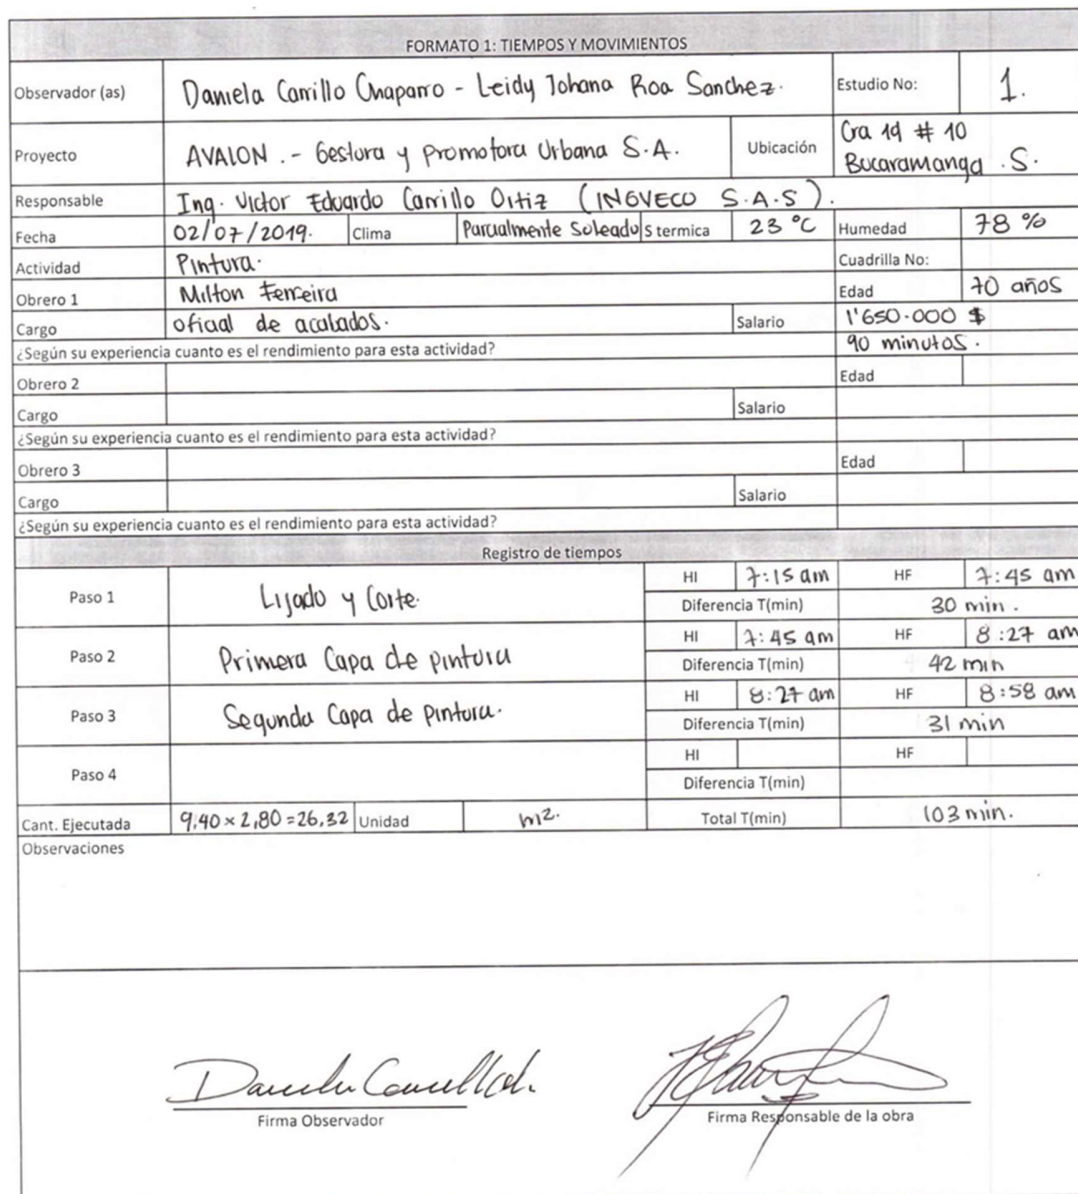 FORMATO 1: TIEMPOS Y MOVIMIENTOS
Observador (as) Daniela Carrillo Chaparro - Leidy Johana Roa Sanchez. Estudio No: 1.
Proyecto AVALON .- Gestora y promotora Urbana S.A. Ubicación Cra 19 # 10
Bucaramanga .S.
Responsable Ing. Victor Eduardo Carrillo Ortiz (INGVECO S.A.S).
Fecha 02/07/2019. Clima Parcialmente Soleado S termica 23 °C Humedad 78 %
Actividad Pintura. Cuadrilla No:
Obrero 1 Milton Ferreira Edad 70 años
Cargo oficial de acabados. Salario 1'650.000 $
¿Según su experiencia cuanto es el rendimiento para esta actividad? 90 minutos.
Obrero 2 Edad
Cargo Salario
¿Según su experiencia cuanto es el rendimiento para esta actividad?
Obrero 3 Edad
Cargo Salario
¿Según su experiencia cuanto es el rendimiento para esta actividad?
Registro de tiempos
Paso 1 Lijado y Corte. HI 7:15 am HF 7:45 am
Diferencia T(min) 30 min.
Paso 2 Primera Capa de pintura HI 7:45 am HF 8:27 am
Diferencia T(min) 42 min
Paso 3 Segunda Capa de pintura. HI 8:27 am HF 8:58 am
Diferencia T(min) 31 min
Paso 4 HI HF
Diferencia T(min)
Cant. Ejecutada 9,40 × 2,80 = 26,32 Unidad m2. Total T(min) 103 min.
Observaciones
Firma Observador Firma Responsable de la obra